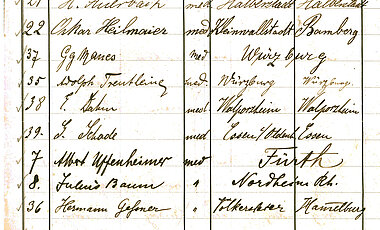 21 H. Auerbach med Halberstadt Halberstadt
22 Oskar Heilmaier med Kleinwallstadt Bamberg
37 Gg Manes med Würzburg
35 Adolph Treutlein med. Würzburg Würzburg
38 E. Dahm med Walporzheim Walporzheim
39. S. Schade med Essen/Oldenb Essen
7 Albert Uffenheimer med Fürth
8. Julius Baum " Nordheim Rh.
36 Hermann Geßner " Volkersleier Hammelburg